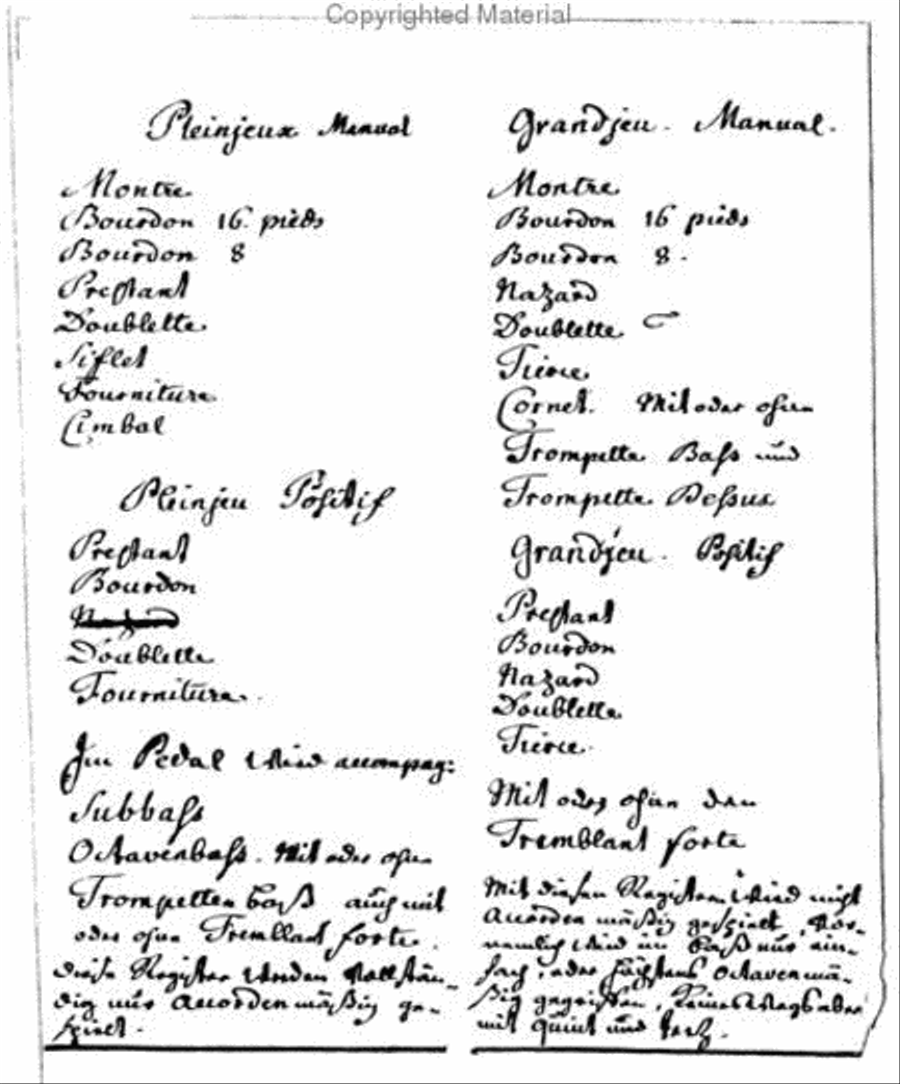 Copyrighted Material
Pleinjeux Manual
Montre.
Bourdon 16. pieds
Bourdon 8
Prestant
Doublette.
Siflet
Fourniture.
Cimbal
Pleinjeu Positif
Prestant
Bourdon
Nazard
Doublette.
Fourniture.
Im Pedal wird accompag:
Subbass
Octavenbass. Mit oder ohne
Trompetten baß auch mit
oder ohne Tremblant forte.
diese Register werden vollstän-
dig nur accordenmäßig ge-
spielt.
Grandjeu. Manual.
Montre.
Bourdon 16 pieds
Bourdon 8.
Nazard
Doublette
Tierce.
Cornet. Mit oder ohne
Trompette Bass und
Trompette Dessus.
Grandjeu. Positif
Prestant
Bourdon
Nazard
Doublette.
Tierce.
Mit oder ohne den
Tremblant forte
Mit diesen Registern wird nicht
accorden mäßig gespielt, vor-
nemlich wird im Baß nur ein-
fach, oder höchstens Octavenmä-
ßig gegriffen, keineswegs aber
mit quint und terz.